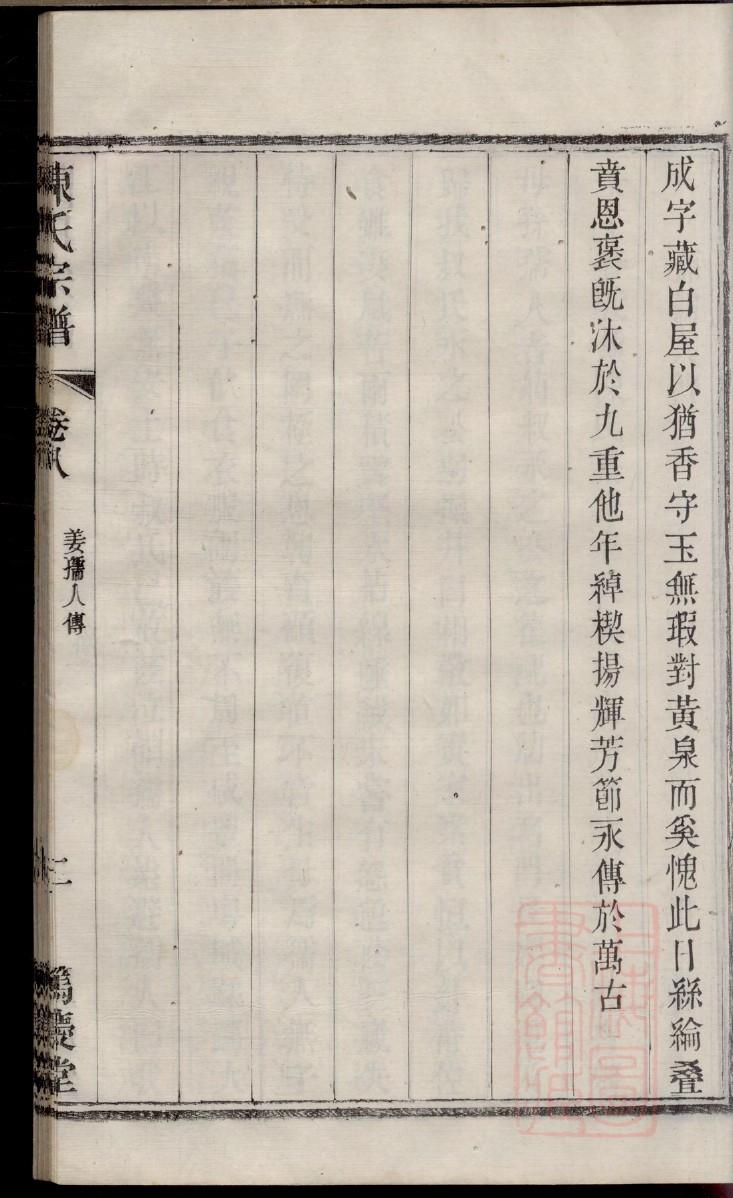 成字藏白屋以猶香守玉無瑕對黃泉而奚愧此日絲綸叠
賁恩褒旣沐於九重他年綽楔揚輝芳節永傳於萬古
陳氏宗譜
卷八
姜孺人傳
三
篤慶堂